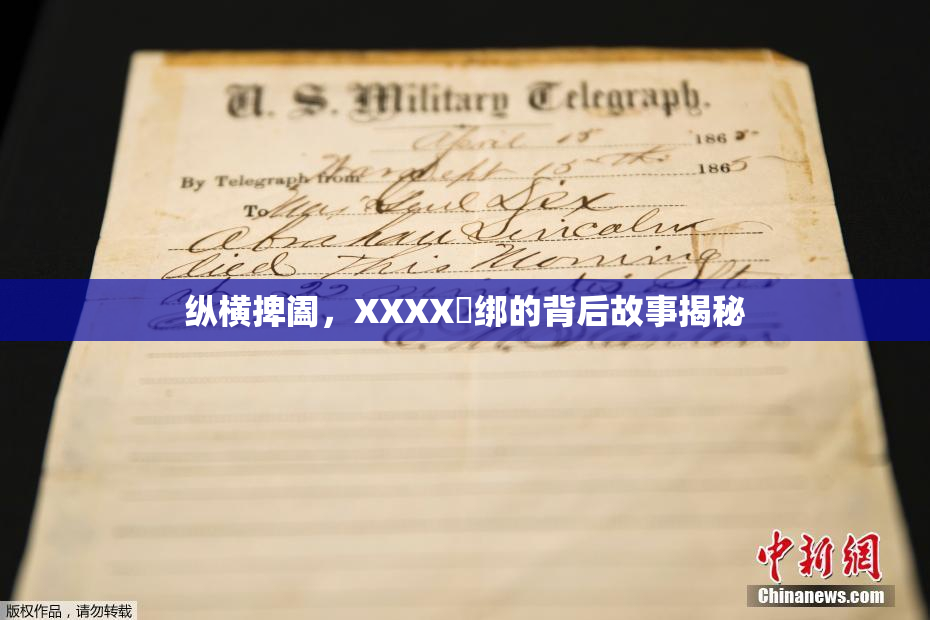 U. S. Military Telegraph.
April 15 1865
By Telegraph from War Dept 15th 1865
To Maj Genl Dix
Abraham Lincoln
died This Morning
22 minutes after
纵横捭阖，XXXX▯绑的背后故事揭秘
中新网
Chinanews.com
版权作品，请勿转载